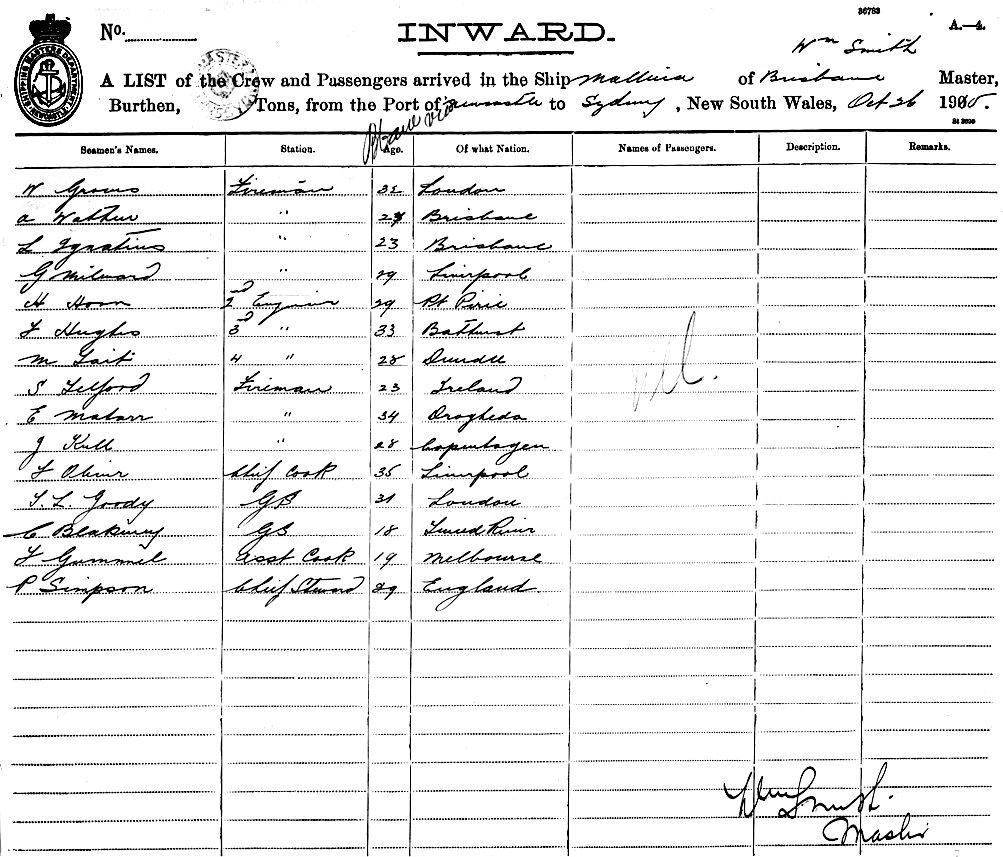 36783
No. INWARD. A.—4.
Wm Smith
A LIST of the Crew and Passengers arrived in the Ship of Brisbane Master,
Burthen, Tons, from the Port of Newcastle to Sydney, New South Wales, Oct 26 1905.
St 3690
Seamen's Names. Station. Age. Of what Nation. Names of Passengers. Description. Remarks.
W Fireman London
A " Brisbane
L Ignatius " 23 Brisbane
G Milward " 29 Liverpool
H Horn 2nd Engineer 29 Pt Pirie
F Hughes 3rd " 33 Bathurst
M Tait 4 " 28 Dundee
S Telford Fireman 23 Ireland
E " 34 Drogheda
J Kull " 28 Copenhagen
F Oliver Chief Cook 35 Liverpool
T. L. Goody GS 31 London
C Blakeney GS 18 Tweed River
F Gummel Asst Cook 19 Melbourne
P Simpson Chief Steward England
Nil.
Wm Smith.
Master